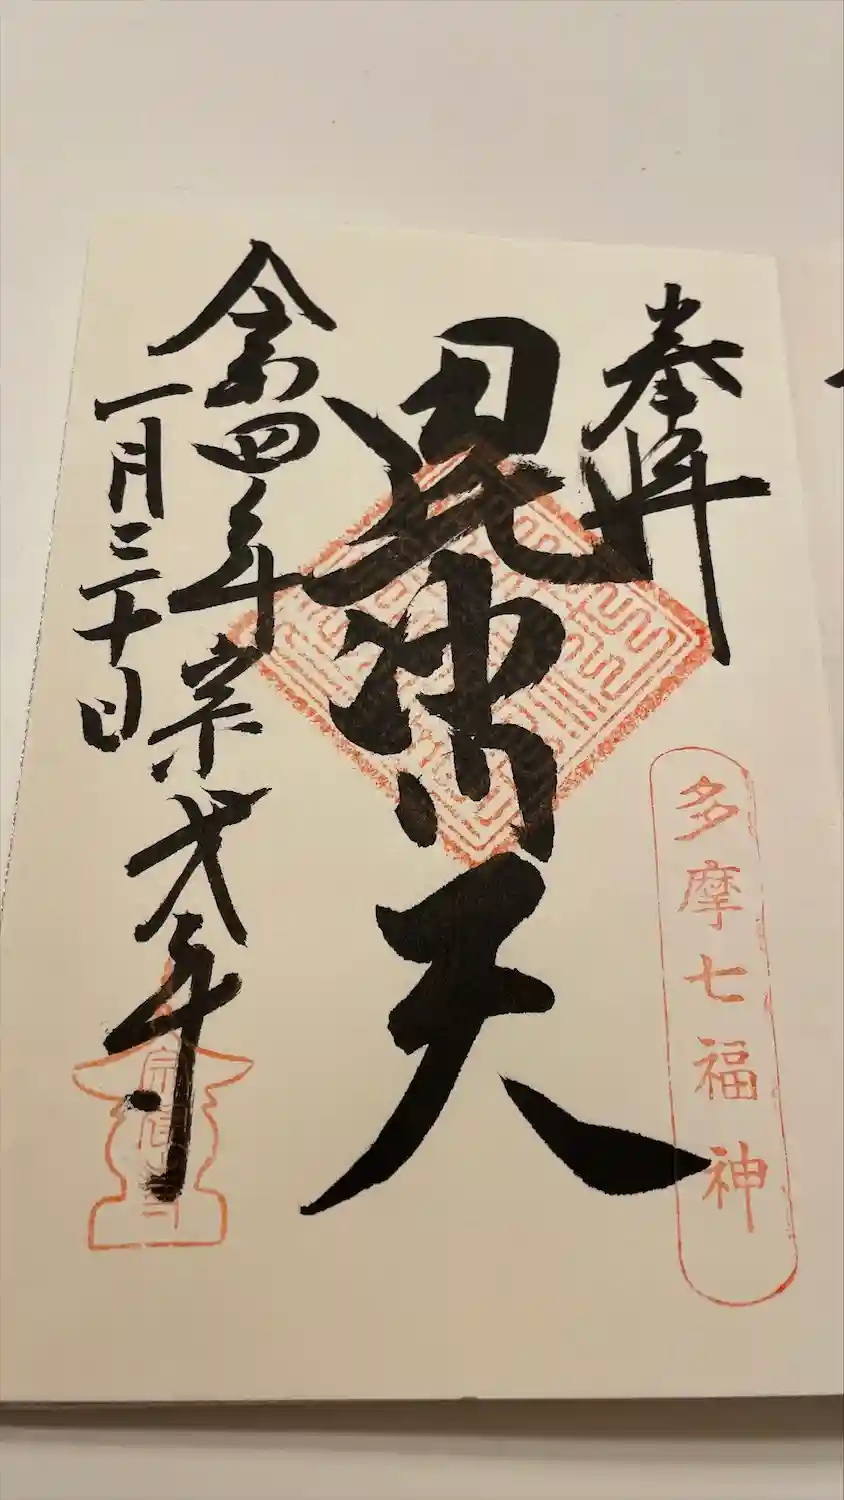 奉拝
多摩七福神
毘沙門天
令和四年
一月三十日
宗建寺